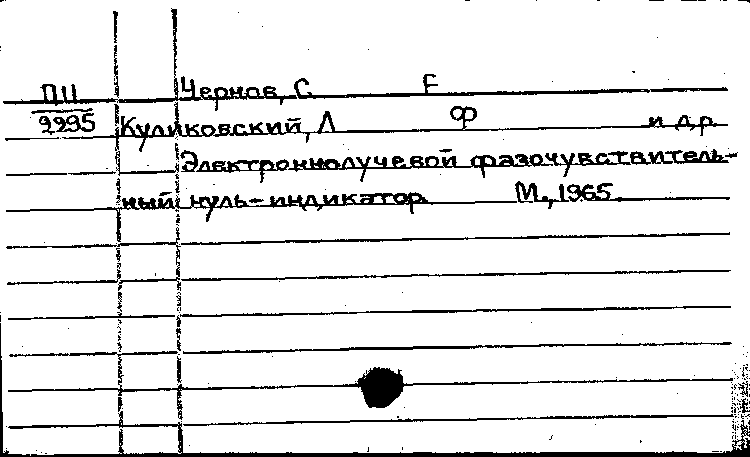 ПИ Чернов, С Е
2295 Куликовский, Л Ф и др.
Электроннолучевой фазочувствитель-
ный нуль-индикатор М., 1965.